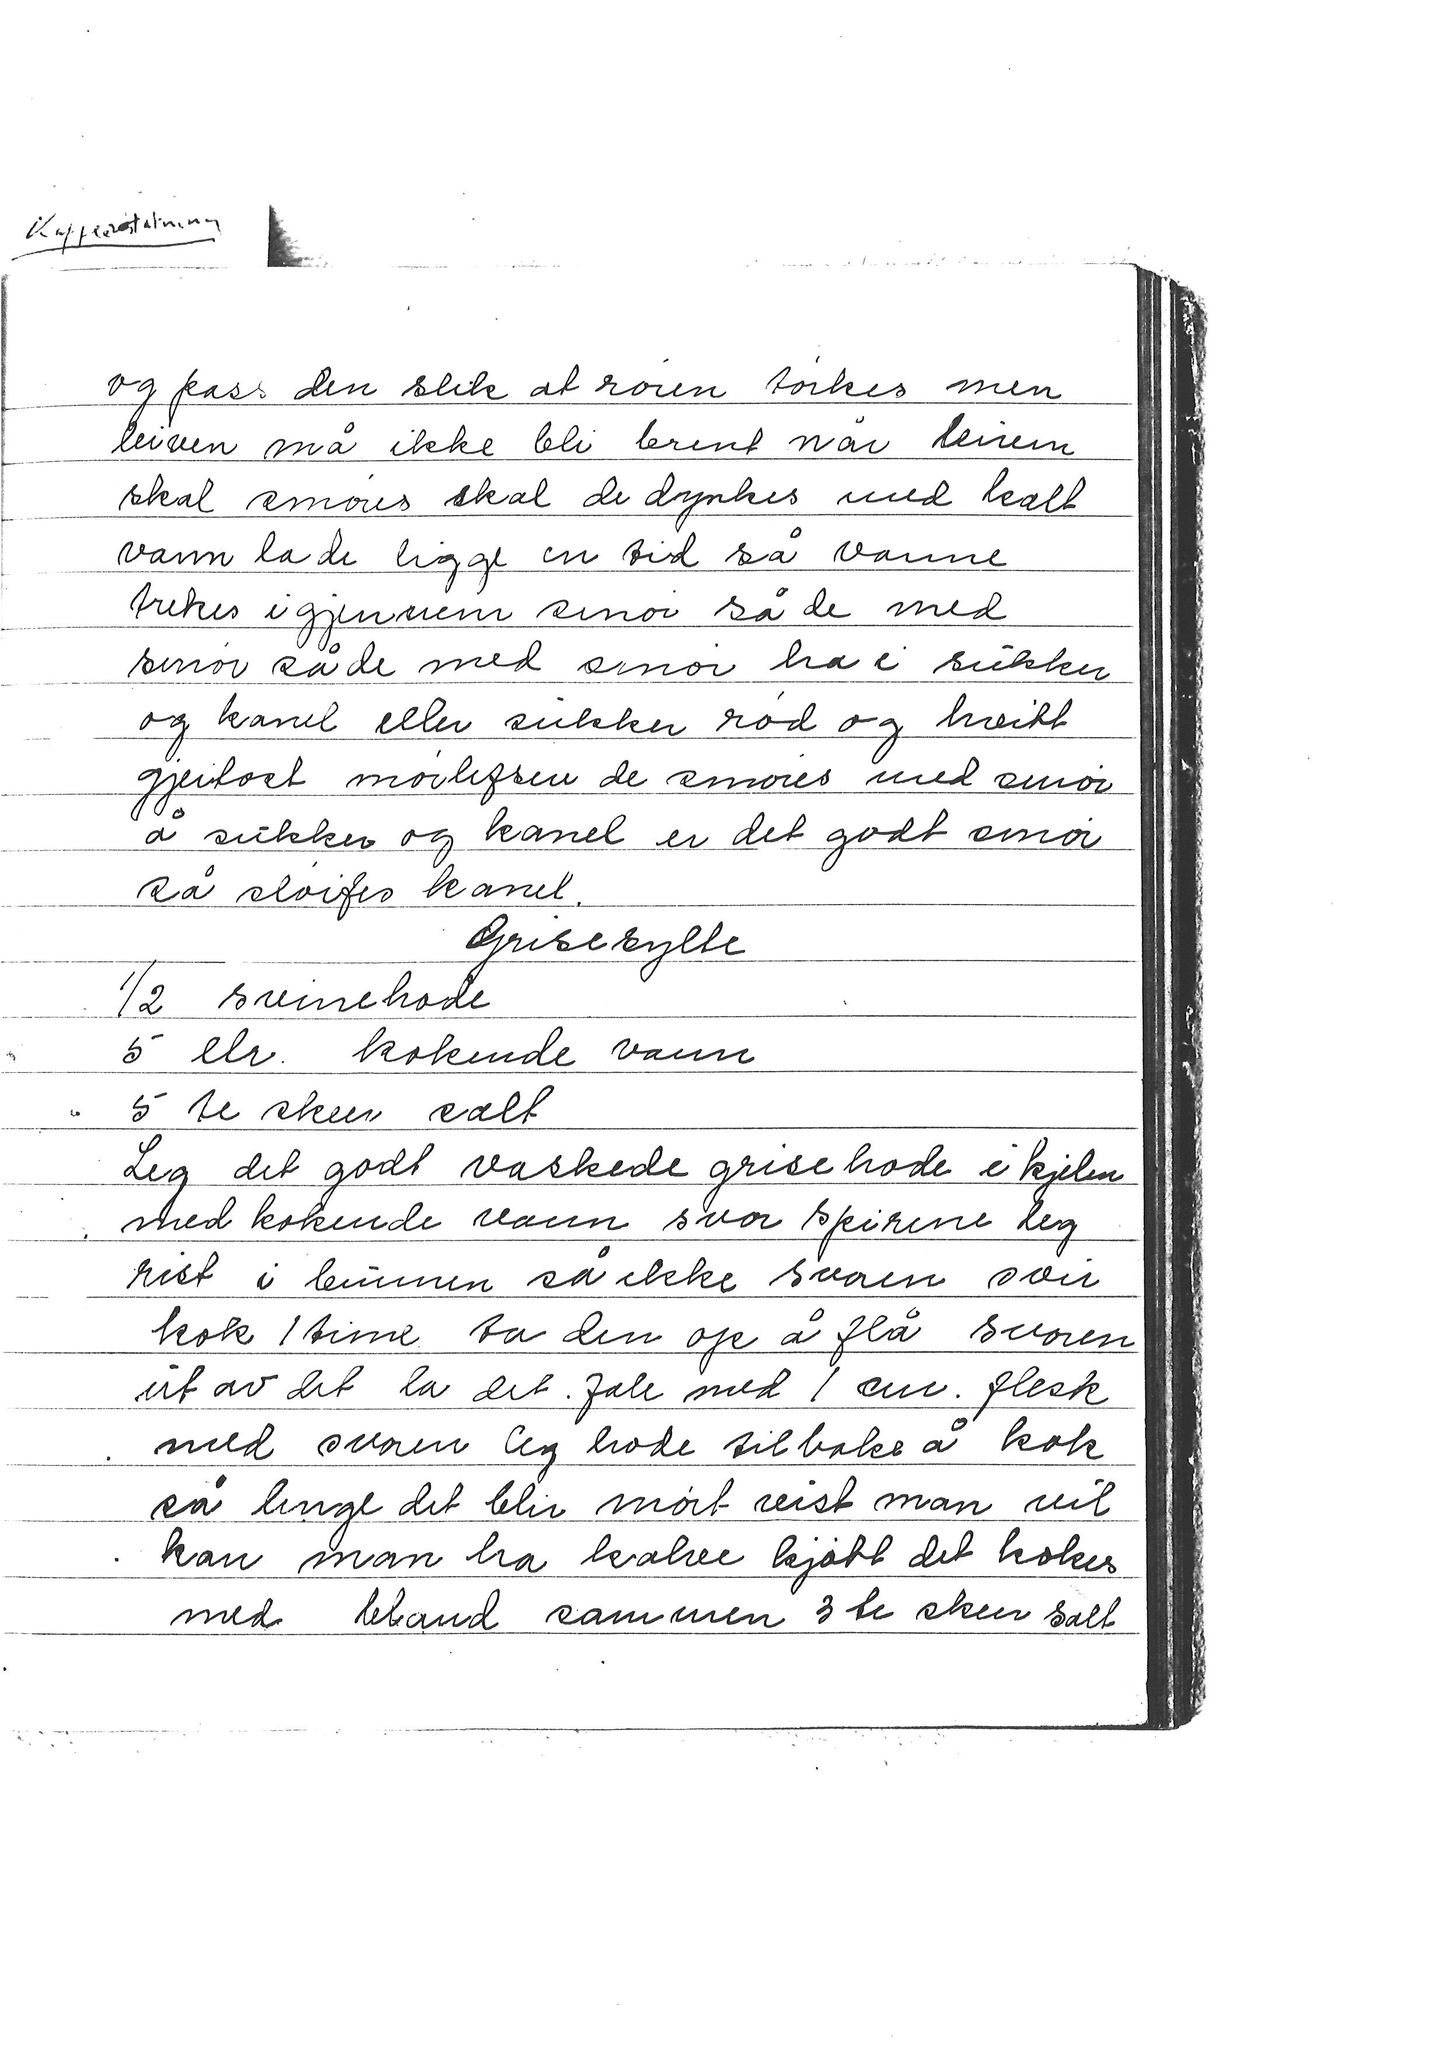 Kaffeerstatning
og pass den slik at røren tørkes men
leiven må ikke bli brent når leiven
skal smøres skal de dynkes med kalt
vann la de ligge en tid så vanne
trekes igjennem smør så de med
smør så de med smør ha i sukker
og kanel eller sukker rød og hveitt
gjeitost mørlefsen de smøres med smør
å sukker og kanel er det godt smør
så sløifes kanel.
Grisesylte
1/2 svinehode
5 llr. kokende vann
5 te skeer salt
Leg det godt vaskede grisehode i kjelen
med kokende vann svor spirene leg
rist i bunnen så ikke svoren svir
kok 1 time ta den op å flå svoren
ut av det la det føle med 1 cm. flesk
med svoren leg hode tilbake å kok
så lenge det blir mørt veist man vil
kan man ha kalve kjøtt det kokes
med bland sammen 3 te skeer salt